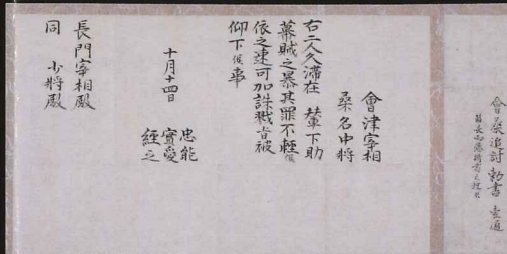 會桑追討 勅書 壹通
會津宰相
桑名中將
右二人久滞在 輦下助
幕賊之暴其罪不輕候
依之速可加誅戮旨被
仰下候事
十月十四日 忠能
實愛
經之
長門宰相殿
同 少將殿